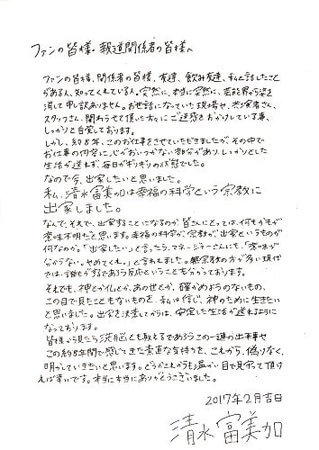 ファンの皆様、報道関係者の皆様へ
ファンの皆様、関係者の皆様、友達、飲み友達、私と話したこと
がある人、知ってくれている人。突然に、本当に突然に、芸能界から姿を
消して申し訳ありません。お世話になっていた現場や、共演者さん、
スタッフさん、関わらせて頂いた方にご迷惑をおかけしている事、
しっかりと自覚しております。
しかし、約8年、このお仕事をさせていただきましたが、その中で
お仕事の内容に、心がおいつかない部分があり、しっかりとした
生活が送れず、毎日がギリギリの状態でした。
なので今、出家したいと思いました。
私、清水富美加は幸福の科学という宗教に
出家しました。
なんで、それで、出家することになるのか、皆さんにとっては、何もかもが
意味不明だと思います。幸福の科学が、宗教が、出家というものが
何なのか。「出家したい」と言ったら、マネージャーさんにも、「意味が
分からない。やめてくれ。」と言われました。無宗教の方が多い現代
では、誰もがするであろう反応ということも分かっております。
それでも、神とか仏とか、あの世とか、確かめようのないもの、
この目で見たこともないものを、私は信じ、神のために生きたい
と思いました。出家を決意してからは、安定した生活が送れるように
なっております。
皆様から見たら洗脳とも取れるであろうこの一連の出来事や
この約8年間で感じてきた素直な気持ちを、これから、偽りなく、
明かしていきたいと思います。どうかこれからも温かい目で見守って頂け
れば幸いです。本当に本当にありがとうございました。
2017年2月吉日
清水富美加